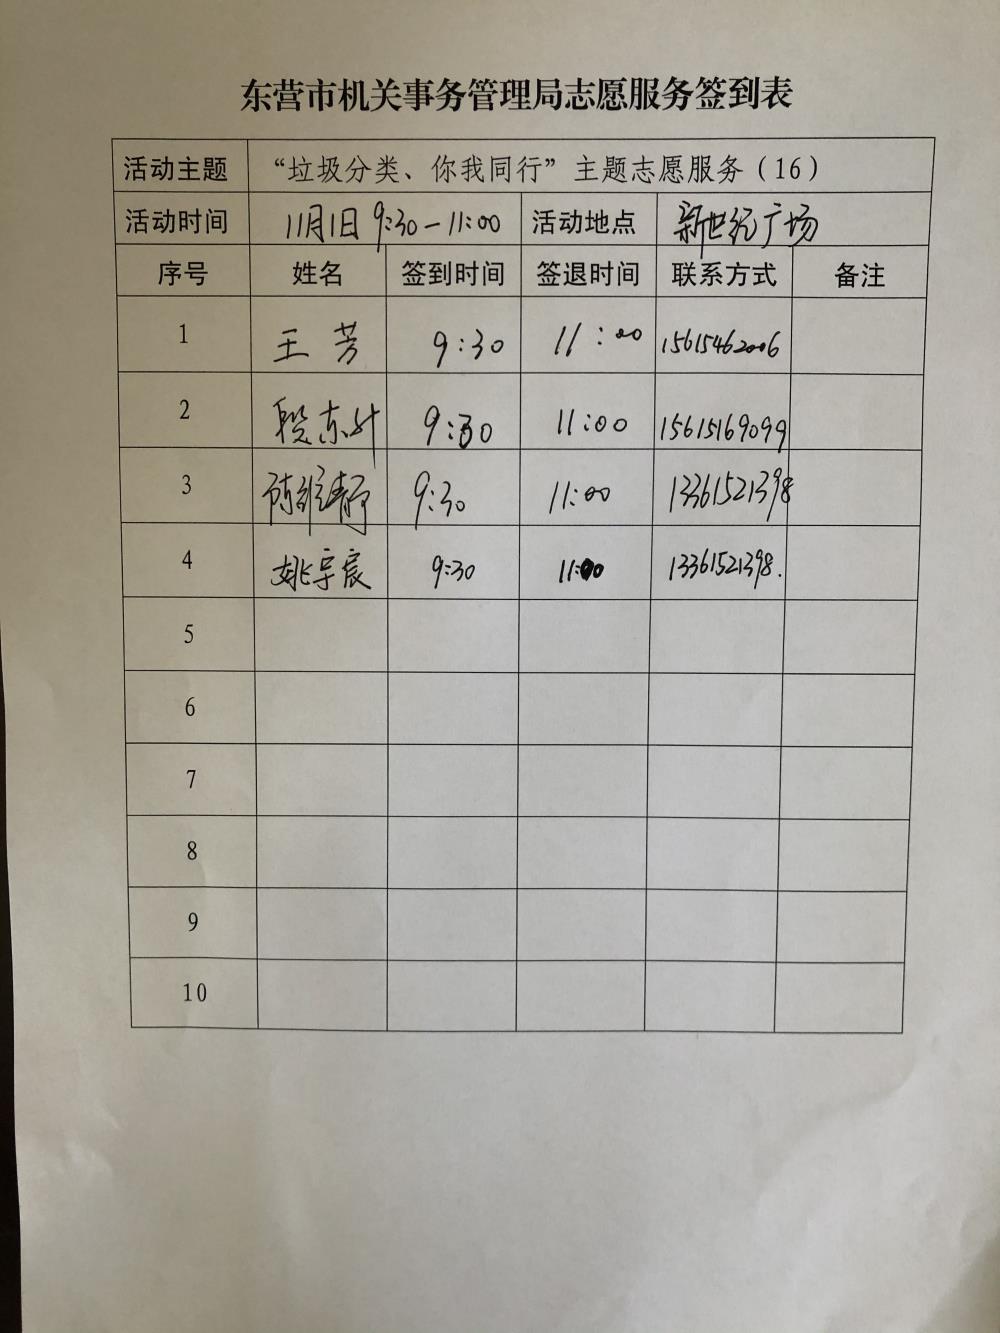 东营市机关事务管理局志愿服务签到表
活动主题 “垃圾分类、你我同行”主题志愿服务（16）
活动时间 11月1日 9:30-11:00 活动地点 新世纪广场
序号 姓名 签到时间 签退时间 联系方式 备注
1 王芳 9:30 11:00 15615462006
2 段东升 9:30 11:00 15615169099
3 陈维静 9:30 11:00 13361521398
4 姚宇宸 9:30 11:00 13361521398.
5
6
7
8
9
10